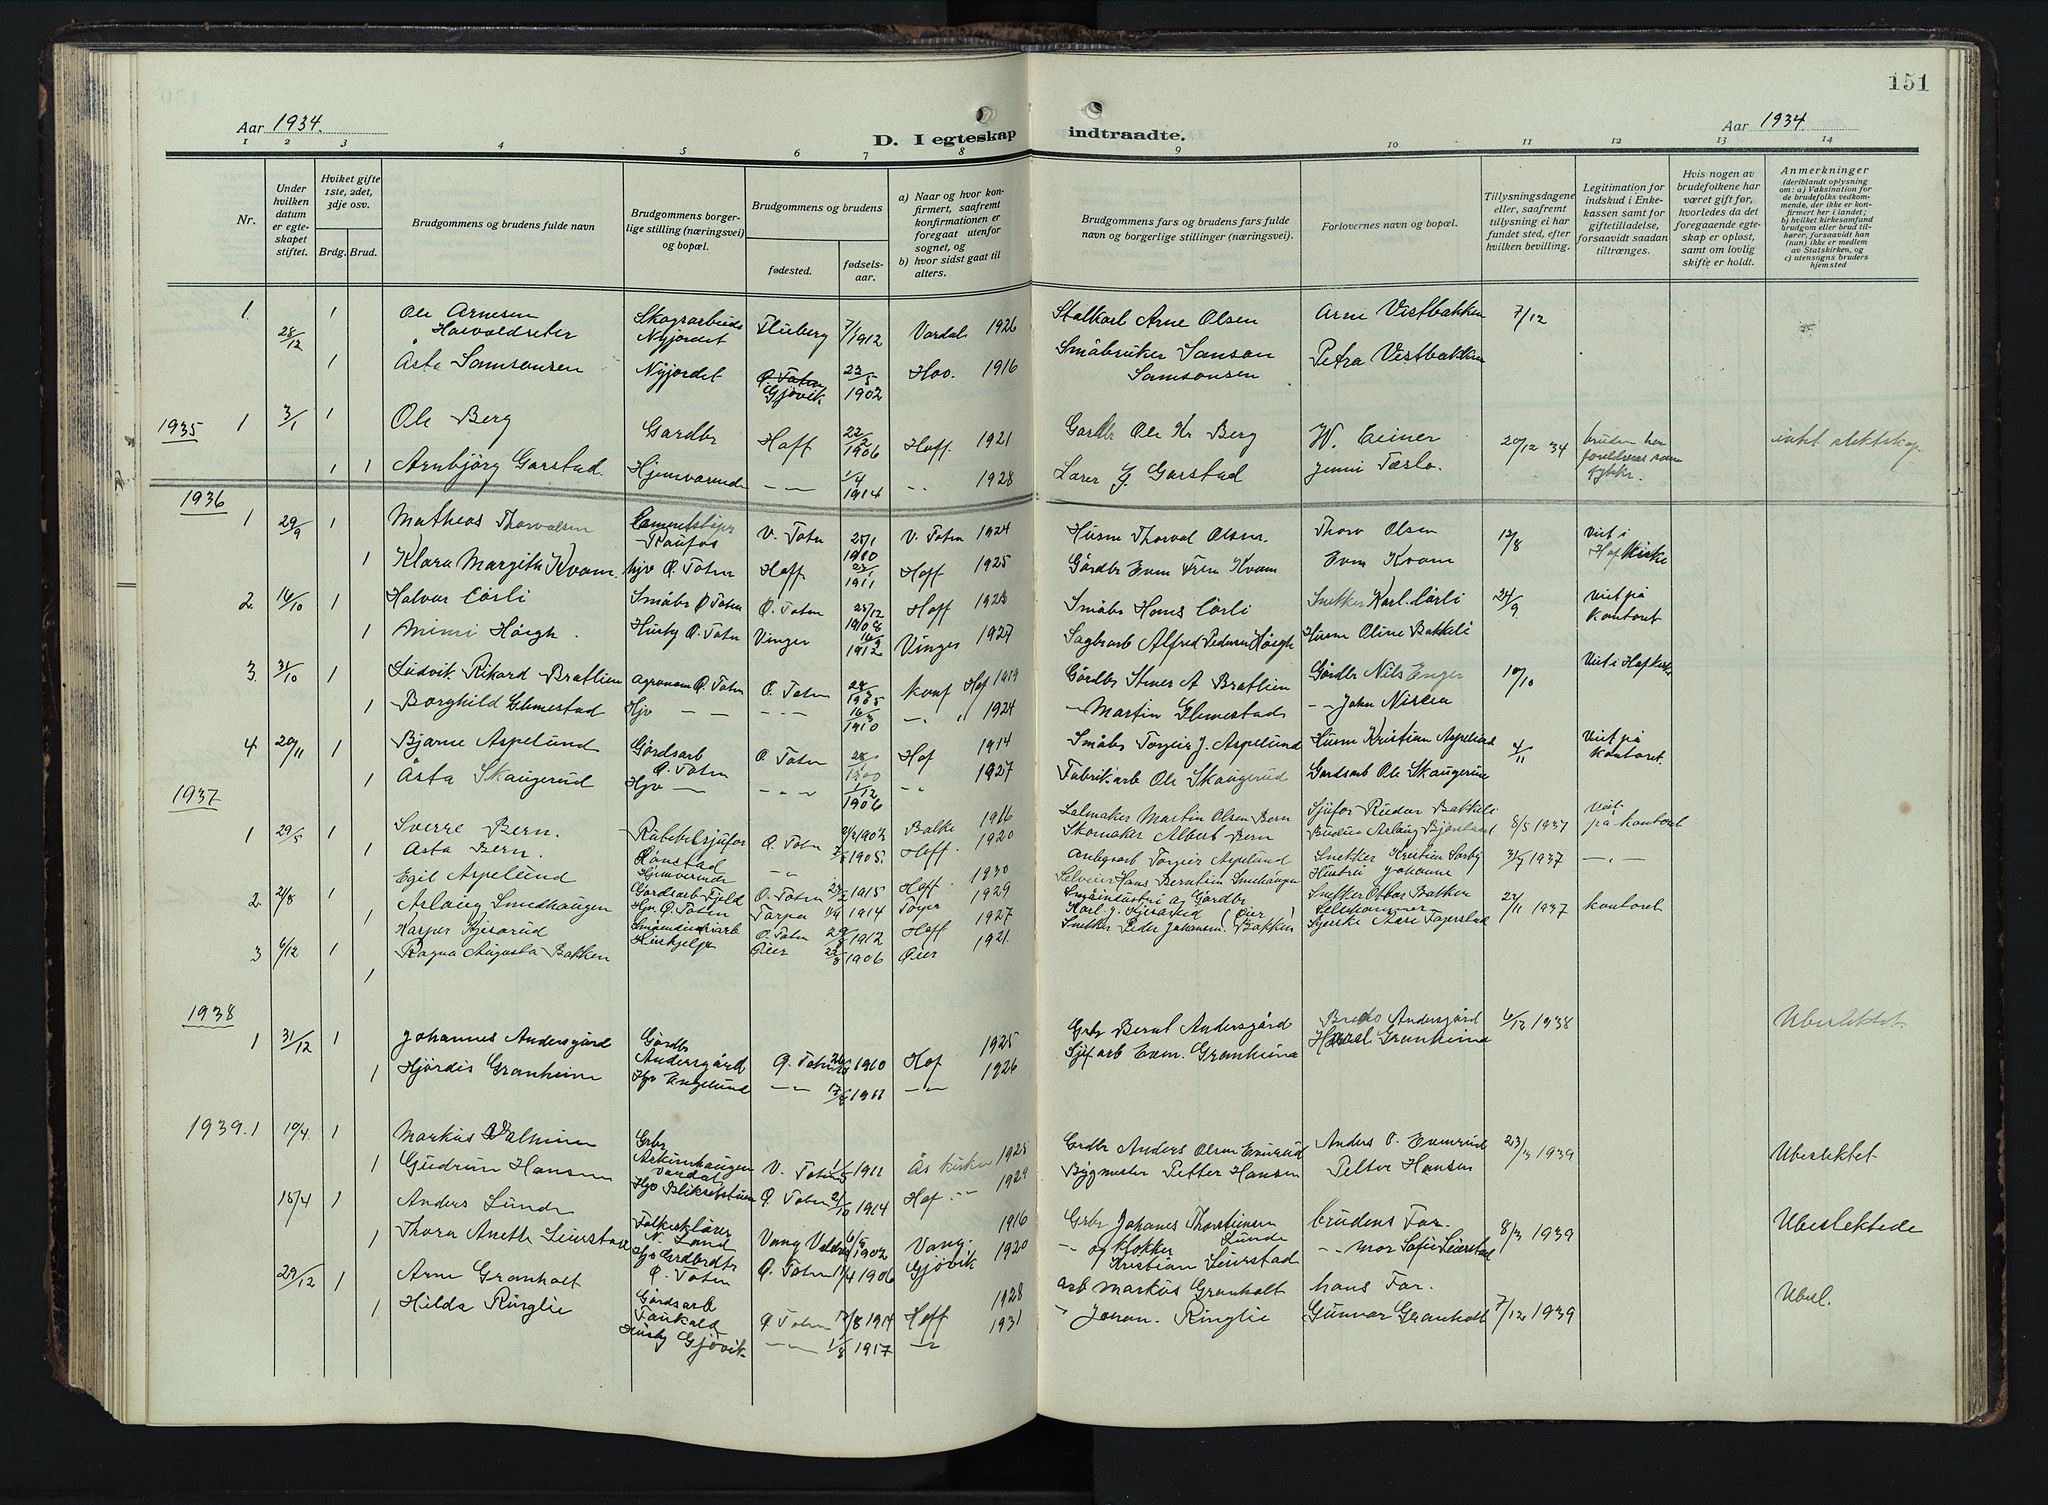 151
Aar 1934.
D. I egteskap indtraadte.
Aar 1934.
1 2 3 4 5 6 7 8 9 10 11 12 13 14
Nr.
Under hvilken datum er egteskapet stiftet.
Hviket gifte 1ste, 2det, 3dje osv.
Brdg. Brud.
Brudgommens og brudens fulde navn
Brudgommens borgerlige stilling (næringsvei) og bopæl.
Brudgommens og brudens
fødested.
fødselsaar.
a) Naar og hvor konfirmert, saafremt konfirmationen er foregaat utenfor sognet, og
b) hvor sidst gaat til alters.
Brudgommens fars og brudens fars fulde navn og borgerlige stillinger (næringsvei).
Forlovernes navn og bopæl.
Tillysningsdagene eller, saafremt tillysning ei har fundet sted, efter hvilken bevilling.
Legitimation for indskud i Enkekassen samt for giftetilladelse, forsaavidt saadan tiltrænges.
Hvis nogen av brudefolkene har været gift før, hvorledes da det foregaaende egteskap er opløst, samt om lovlig skifte er holdt.
Anmerkninger
(deriblandt oplysning om: a) Vaksination for de brudefolks vedkommende, der ikke er konfirmert her i landet; b) hvilket kirkesamfund brudgom eller brud tilhører, forsaavidt han (hun) ikke er medlem av Statskirken, og c) utensogns bruders hjemsted
1. 28/12 1 Ole Arnesen Nyjordet Fluberg 7/1 1912 Vardal 1926 Arne Olsen Arne Vestbakken 7/12
1 Åsta Samsonsen Nyjordet Ø. Toten Gjøvik 22/5 1902 Hov. 1916 Småbruker Samson Samsonsen Petra Vestbakken
1935 1 3/1 1 Ole Berg Gardbr Hoff 22/2 1906 Hoff. 1921 Gardbr Ole Kr Berg W. Einer 20/12 34 intet slektskap
1 1 Arnbjørg Garstad Hjemværende 1/4 1914 1928 Lærer G. Garstad Jenni Tæslo.
1936
1 29/9 1 Matheos Thorvalsen Raufos V. Toten 25/1 1910 V. Toten 1924 Husm Thorval Olsen Thorv Olsen 12/8 Viet i Hof Kirke
1 Klara Margith Kvam hjv Ø. Toten Hoff 23/1 1911 Hoff 1925 Gårdbr Even Kvam Even Kvam
2. 16/10 1 Halvor Cørli Småbr Ø Toten Ø. Toten 25/12 1908 Hoff 1923 Småbr Hans Cørli Snekker Karl Cørli 24/9 Viet på Kontoret
1 Mimi Høigh. Husby Ø. Toten Vinger 1912 Vinger 1927 Sagbrarb Alfred Pedersen Høigh Husm Oline Bakkeli
3. 31/10 1 Ludvik Rikard Bratlien agronom Ø. Toten Ø. Toten 1905 Konf Hof 1919 Gårdbr Stener A Bratlien Gårdbr Nils Enger 10/10 Viet i Hofkirke
1 Borghild Glemestad Hjv 16/3 1910 1924 Martin Glemestad John Nislen
4. 20/11 1 Bjarne Aspelund Gårdsarb Ø. Toten Ø Toten 28/1 1900 Hof 1914 Småbr Torgeir J. Aspelund Husm Kristian Aspelund 4/11 Viet på Kontoret.
1 Åsta Skaugerud Hjv 1/12 1906 1927 Fabrikarb Ole Skaugerud Gardsarb Ole Skaugerud
1937
1 29/5 1 Sverre Bern. Rutebilsjufør Ø. Toten 1907 Balke 1916 Salmaker Martin Olsen Bern Sjufør Reidar Bakkeli 8/5 1937 Viet på kontoret
1 Åsta Bern. 1905. Hoff. 1920 Skomaker Albert Bern
Egil Aspelund Hjemværende 1930 Anlegsarb Torgeir Aspelund Snekker Kristian Sørby 31/7 1937
2. 21/8 1 Aslaug Smedhaugen Gårdsarb Fjeld Ø. Toten 1915 Hoff. 1929 Hans Berntsen Smedhaugen Hustru Johanne
1 Kasper Gjisarud Hjv Ø. Toten Torpa 1914 Torpa 1927 22/11 1937 kontoret
3 6/12 1 Ragna Augusta Bakken Hushjelp Ø. Toten 1912 Hoff 1921. Snekker Peder Johansen Bakken
1 Øier 1906 Øier
1938
1 31/12 1 Johannes Andersgård Gårdbr Andersgård Ø. Toten 1910 Hof 1925 Grbr Bernt Andersgård Bredo Andersgård 6/12 1938 Ubeslektet
1 Hjørdis Granheim Hjv 1911 1926 Even. Granheim Haral Granheim
1939. 1 10/4. 1 Markus Grbr Vardal V. Toten 1911 Ås kirke 1925 Grdbr Anders Olsen Anders O. 23/3 1939 Ubeslektet
1 Gudrun Hansen Hjv Ø. Toten 21/10 1914 Hof 1929 Bygmester Petter Hansen Petter Hansen
15/4 1 Anders Lunde N. Land Vang Valdres 1902 Vang. 1916 Grbr Johanes Thorstensen Lunde brudens Far. 8/3 1939 Ubeslektede
1 Thora Anette Leirstad Ø. Toten Ø. Toten 1906 Gjøvik 1920 og Klokker Kristian Leirstad mor Sofie Leirstad
29/12 1 Arne Granholt Gårdsarb Ø Toten 1914 Hoff 1928 arb Markus Granholt hans Far. Ubesl.
1 Hilda Ringlie Husby Gjøvik 1/8 1917 1931 Johan. Ringlie Gunnar Granholt 7/12 1939